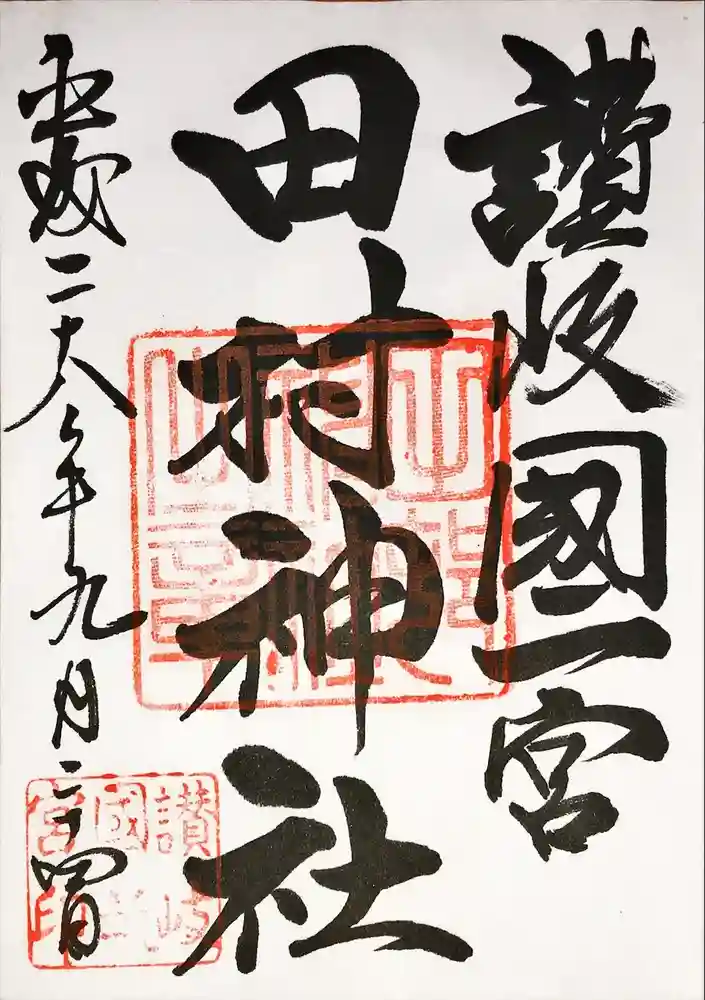 讃岐國一宮
田村神社
平成二十八年九月二十四日
讃岐
國弌
宮印